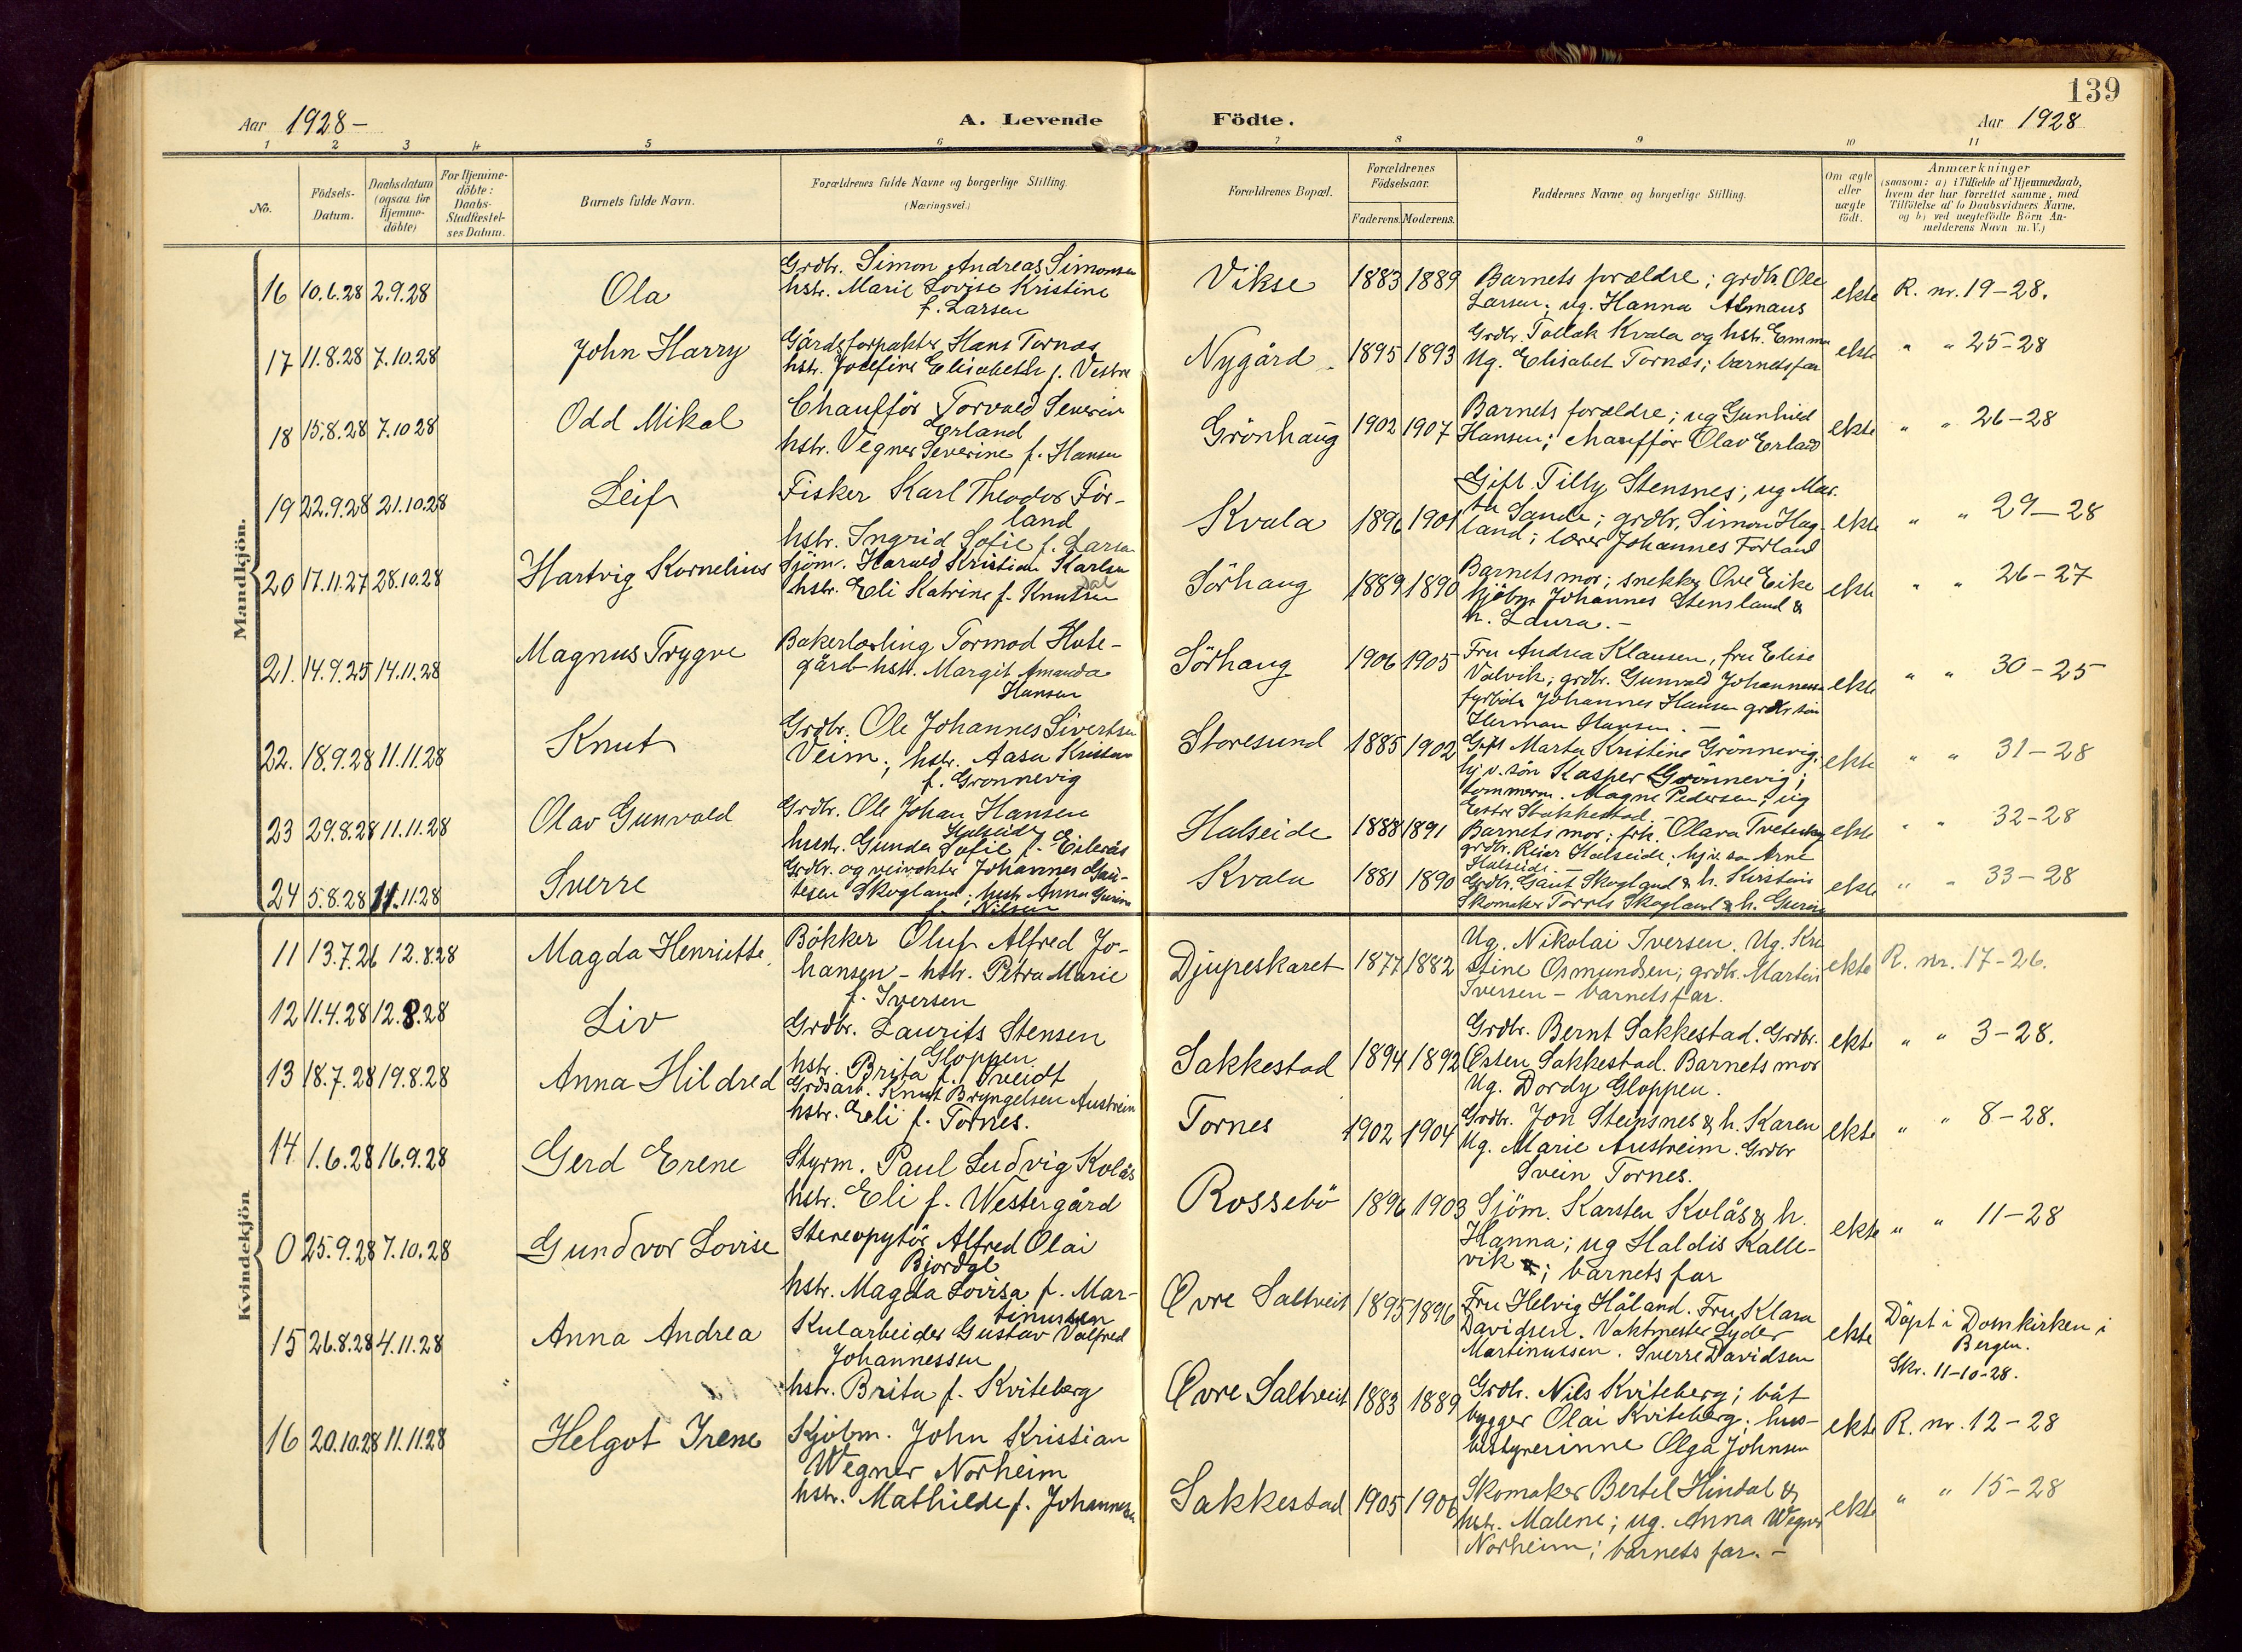 139
Aar 1928 –
A. Levende
Födte.
Aar 1928
1 2 3 4 5 6 7 8 9 10 11
No.
Födsels-
Datum.
Daabsdatum
(ogsaa for
Hjemme-
döbte)
For Hjemme-
döbte:
Daabs-
Stadfæstel-
ses Datum.
Barnets fulde Navn.
Forældrenes fulde Navne og borgerlige Stilling.
(Næringsvei.)
Forældrenes Bopæl.
Forældrenes
Födselsaar.
Faderens. Moderens.
Faddernes Navne og borgerlige Stilling.
Om ægte
eller
uægte
födt.
Anmærkninger
(saasom: a) i Tilfælde af Hjemmedaab,
hvem der har forrettet samme, med
Tilföielse af to Daabsvidners Navne,
og b) ved uegtefödte Börn An-
melderens Navn m. V.)
Mandkjön.
16 10.6.28 2.9.28 Ola
Grdbr. Simon Andreas Simonsen
hstr. Marie Lovise Kristine
f. Larsen
Vikse 1883 1889
Barnets forældre; grdbr. Ole
Larsen; ug. Hanna
ekte R. nr. 19-28.
17 11.8.28 7.10.28 John Harry
Gårdsforpakter Hans Tornæs
hstr. Josefine Elisabeth f. Vestre
Nygård 1895 1893
Grdbr. Tollak Kvala og hstr. Emma
Ug. Elisabet Tornæs; barnets far
ekte " " 25-28
18 15.8.28 7.10 28 Odd Mikal
Chaufför Torvald Severin
Erland
hstr. Vegner Severine f. Hansen
Grönhaug 1902 1907
Barnets forældre; ug Gunhild
Hansen; chaufför Olav Erland
ekte " " 26-28
19 22.9.28 21.10.28 Leif
Fisker Karl Theodor För-
land
hstr. Ingrid Sofie f. Larsen
Kvala 1896 1901
Gift Tilly Stensnes; ug Mar-
ta Sande; grdbr. Simon Hag-
land; lærer Johannes Förland
ekte " " 29-28
20 17.11.27 28.10.28 Hartvig Kornelius
Sjöm. Harald Kristian Karlsen
Dal
hstr. Eli Katrine f. Knutsen
Sörhaug 1889 1890
Barnets mor; snekker Ove Eike
kjöbm Johannes Stensland &
h. Laura. -
ekte " " 26-27
21. 14.9.25 14.11.28 Magnus Trygve
Bakerlærling Tormod
gård hstr. Margit Amanda
Hansen
Sörhaug 1906 1905
Fru Andrea Klausen, fru Elise
Valvik; grdbr. Gunvald Johannessen
fyrböter Johannes Hansen grdbr sön
Herman Hansen. -
ekte " " 30-25
22. 18.9.28 11.11.28 Knut
Grdbr. Ole Johannes Sivertsen
Veim; hstr. Aasa
f. Grönnevig
Storesund 1885 1902
Gift Marta Kristine Grönnevig;
hj.v. sön Kasper Grönnevig;
tömmerm. Magne Pedersen; ug
Ester Stakkestad. -
ekte " " 31-28
23 29.8.28 11.11.28 Olav Gunvald
Grdbr. Ole Johan Hansen
Halseide
hustr. Gunda Sofie f. Eilerås
Halseide 1888 1891
Barnets mor; frk. Olava
grdbr. Reiar Halseide; hj.v. sön Arne
Halseide. -
ekte " " 32-28
24 5.8.28 11.11.28 Sverre
Grdbr. og veivokter Johannes Gau-
tesen Skogland; hustr Anna Gurine
f. Nilsen
Kvala 1881 1890
Grdbr. Gaut Skogland & h. Kirstine
Skomaker Torvls Skogland & h. Gurine
ekte " " 33-28
Kvindekjön
11 13.7.26 12.8.28 Magda Henriette
Bökker Oluf Alfred Jo-
hansen - hstr. Petra Marie
f. Iversen
Djupeskaret 1877 1882
Ug. Nikolai Iversen. Ug. Kri
stine Osmundsen; grdbr. Martin
Iversen - barnets far.
ekte R. nr. 17-26.
12 11.4.28 12.8.28 Liv
Grdbr. Laurits Stensen
Gloppen
hstr. Brita f. Tveidt
Sakkestad 1894 1892
Grdbr. Bernt Sakkestad. Grdbr.
Østen Sakkestad. Barnets mor
Ug. Dordy Gloppen.
ekte " " 3-28.
13 18.7.28 19.8.28 Anna Hildred
Grdsarb. Knut Bryngelsen Austreim
hstr. Eli f. Tornes.
Tornes 1902 1904
Grdbr. Jon Steinsnes & h. Karen
Ug. Marie Austreim. Grdbr
Svein Tornes.
ekte " " 8-28.
14 1.6.28 16.9.28 Gerd Erene
Styrm. Paul Ludvig Kolås
hstr. Eli f. Westergård
Rossebö 1896 1903
Sjöm. Karsten Kolås & h.
Hanna; ug Haldis Kalle-
vik; barnets far
ekte " " 11-28
0 25.9.28 7.10.28 Gundvor Lovise
Stereopytör Alfred Olai
Bjordal
hstr. Magda Lovisa f. Mar-
tinussen
Øvre Saltveit 1895 1896
Fru Helvig Håland. Fru Klara
Davidsen. Vaktmester Lyder
Martinussen. Sverre Davidsen
ekte Döpt i Domkirken i
Bergen.
Skr. 11-10-28.
15 26.8.28 4.11.28 Anna Andrea
Kularbeider Gustav Valfred
Johannessen
hstr. Brita f. Kviteberg
Øvre Saltveit 1883 1889
Grdbr. Nils Kviteberg; båt
bygger Olai Kviteberg; hus-
bestyrerinne Olga Johnsen
ekte R. nr. 12-28
16 20.10.28 11.11.28 Helgot Irene
Kjöbm. John Kristian
Wegner Norheim
hstr. Mathilde f. Johannessen
Sakkestad 1905 1906
Skomaker Bertel Hindal &
hstr. Malene; ug. Anna Wegner
Norheim; barnets far. -
ekte " " 15-28